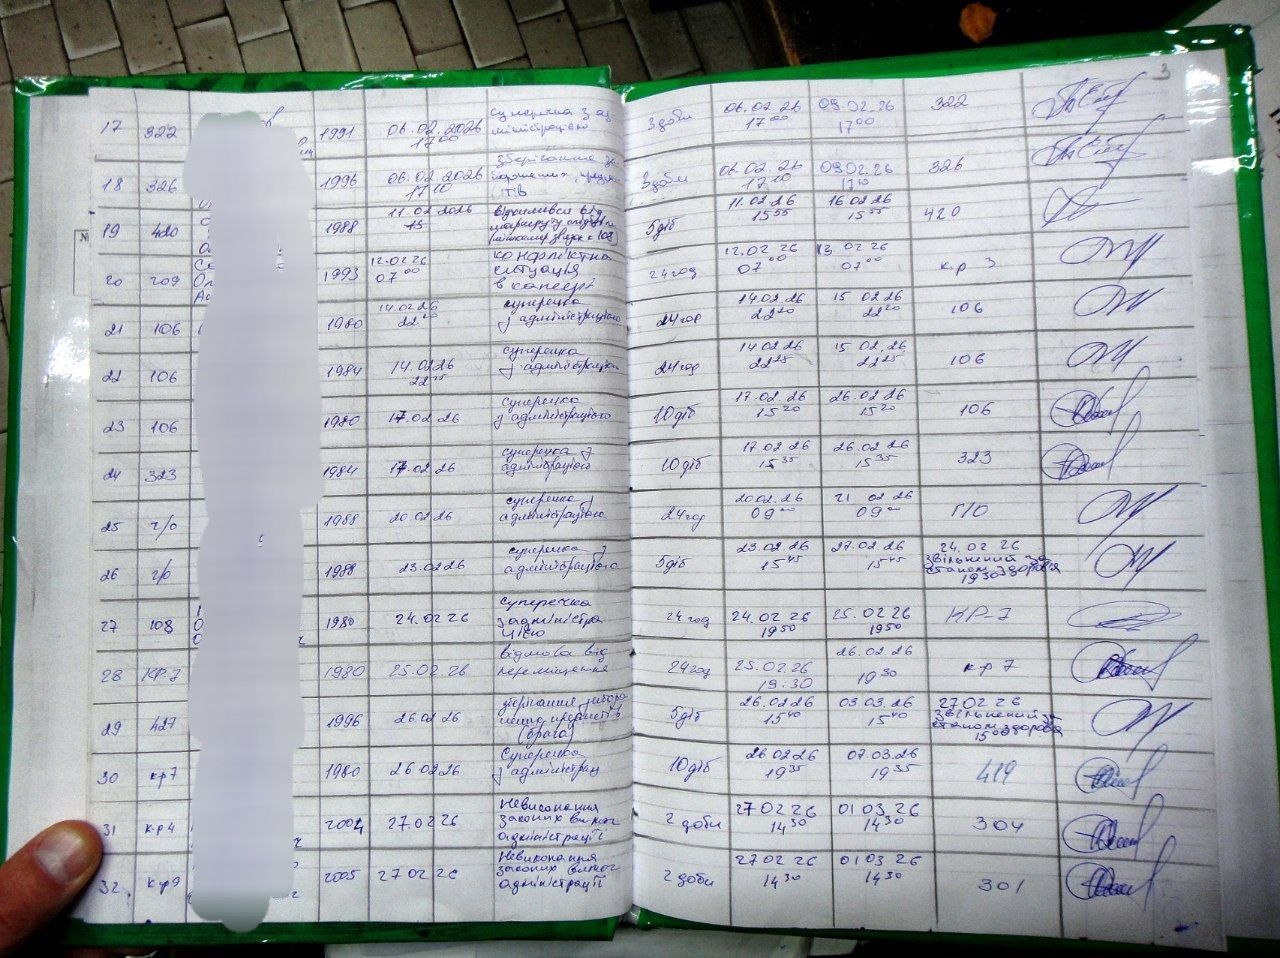 3
17 322 1991 06.02.2026 17 00 суперечка з ад міністрацією 3 доби 06.02.26 17 00 09.02.26 17 00 322
18 326 1996 06.02.2026 17 10 зберігання за- боронених предме тів 3 доби 06.02.26 17 10 09.02.26 17 10 326
19 420 1988 11.02.2026 15 відхилився від маршруту 5 діб 11.02.26 15 55 16 02.26 15 55 420
20 209 1993 12.02 26 07 00 конфліктна ситуація в камері 24 год 12.02 26 07 00 13 02 26 07 00 к.р 3
21 106 1980 14.02 26 22 20 суперечка з адміністрацією 24 год 14.02 26 22 20 15 02 26 22 20 106
22 106 1984 14.02.26 22 25 суперечка з адміністрацією 24 год 14 02 26 22 25 15 02 26 22 25 106
23 106 1980 17.02.26 суперечка з адміністрацією 10 діб 17 02.26 15 20 26.02 26 15 20 106
24 323 1984 17.02.26 суперечка з адміністрацією 10 діб 17 02.26 15 35 26.02.26 15 35 323
25 г/о 1988 20.02.26 суперечка з адміністрацією 24 год 20 02.26 09 00 21 02 26 09 00 г/о
26 г/о 1988 23.02 26 суперечка з адміністрацією 5 діб 23.02 26 15 45 27.02 26 15 45 24.02 26 звільнений за станом здоровя 19 30
27 108 1980 24.02 26 суперечка з адміністра цією 24 год 24.02 26 19 50 25.02 26 19 50 КР-7
28 КР-7 1980 25.02 26 відмова від переміщення 24 год 25.02.26 19:30 26.02.26 19 30 кр 7
29 427 1996 26.02 26 зберігання заборо нених предметів (брага) 5 діб 26.02.26 15 40 03.03.26 15 40 27 02 26 звільнений за станом здоровя 15 00
30 кр 7 1980 26 02 26 Суперечка з адміністрац 10 діб 26 02 26 19 35 07.03.26 19 35 419
31 к.р 4 2004 27.02 26 Невиконання законих вимог адміністрації 2 доби 27 02 26 14 30 01 03 26 14 30 304
32 к р 9 2005 27 02 26 Невиконання законих вимог адміністрації 2 доби 27 02 26 14 30 01 03 26 14 30 301